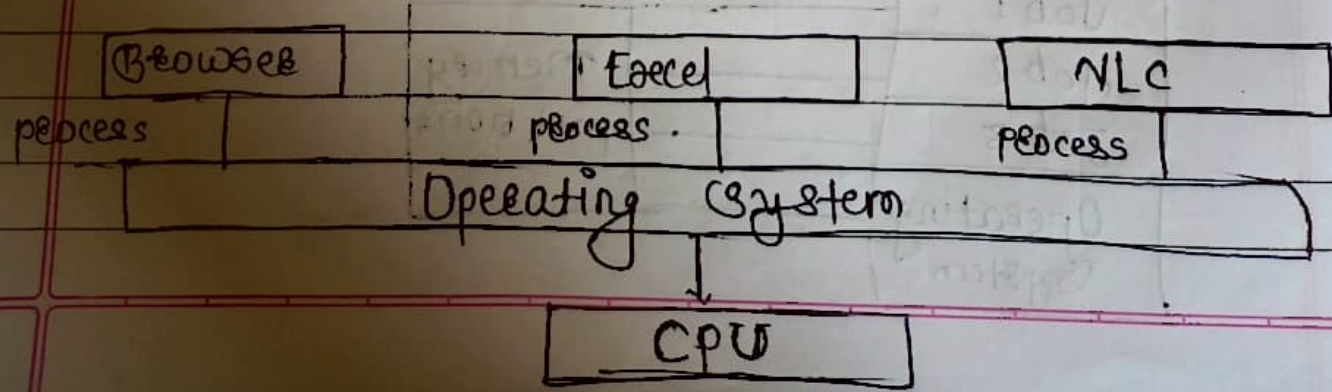 Browser Excel NLC
process process process
Operating System
CPU